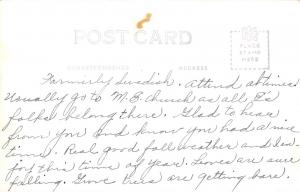 POST CARD
PLACE
STAMP
HERE
CORRESPONDENCE ADDRESS
Formerly Swedish. Attend at times
Usually go to M.E. Church as all Ed's
folks belong there. Glad to hear
from you and know you had a nice
time. Real good fall weather and
for this time of year. Leaves are sure
falling. Grove trees are getting bare.